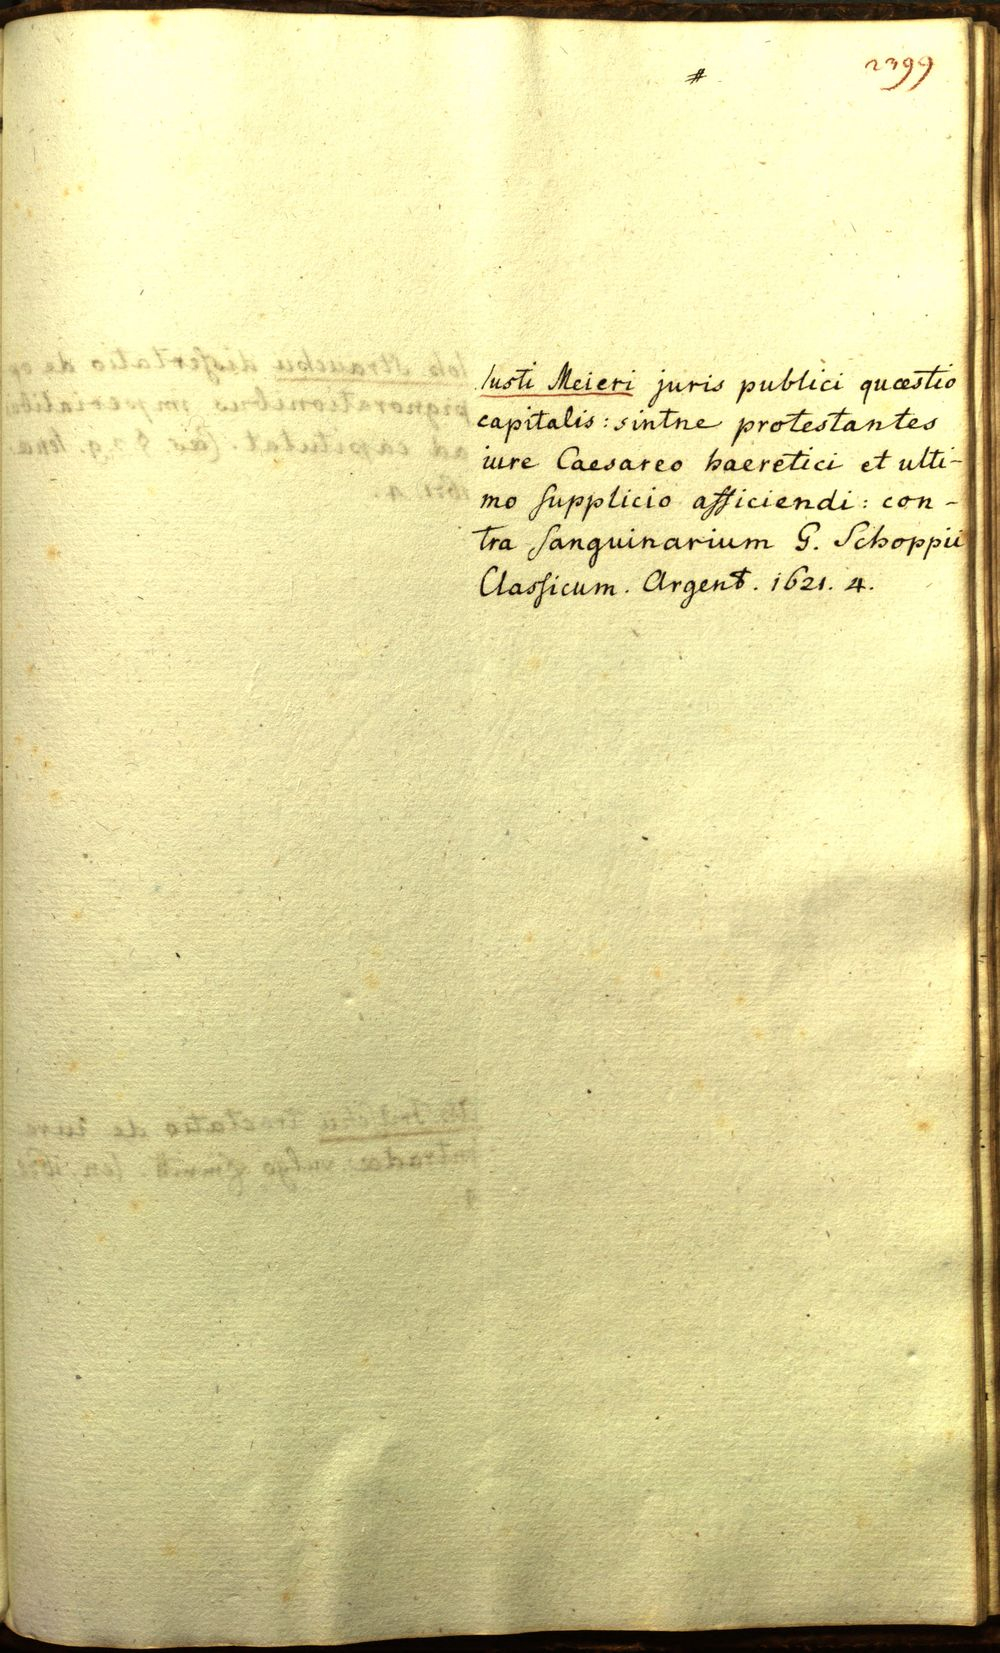 #
2399
Iusti Meieri juris publici quæstio
capitalis: sintne protestantes
iure Caesareo haeretici et ulti-
mo supplicio afficiendi: con-
tra sanguinarium G. Schoppii
Classicum. Argent. 1621. 4.